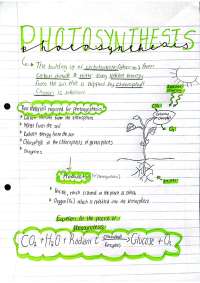 PHOTOSYNTHESIS
photosynthesis
The building up of carbohydrate (glucose) from
Carbon dioxide & water using radiant energy
from the sun that is trapped by chlorophyll
Oxygen is released
Radiant energy
CO₂
O₂
The materials required for photosynthesis
• Carbon dioxide from the atmosphere
• Water from the soil
• Radiant energy from the sun
• Chlorophyll in the chloroplasts of green plants
• Enzymes
Products of Photosynthesis
which is stored in the plant as starch
• Oxygen (O₂) which is released into the atmosphere
Equation for the process of
photosynthesis
CO₂ + H₂O + Radiant E chlorophyll → Glucose + O₂
Enzymes